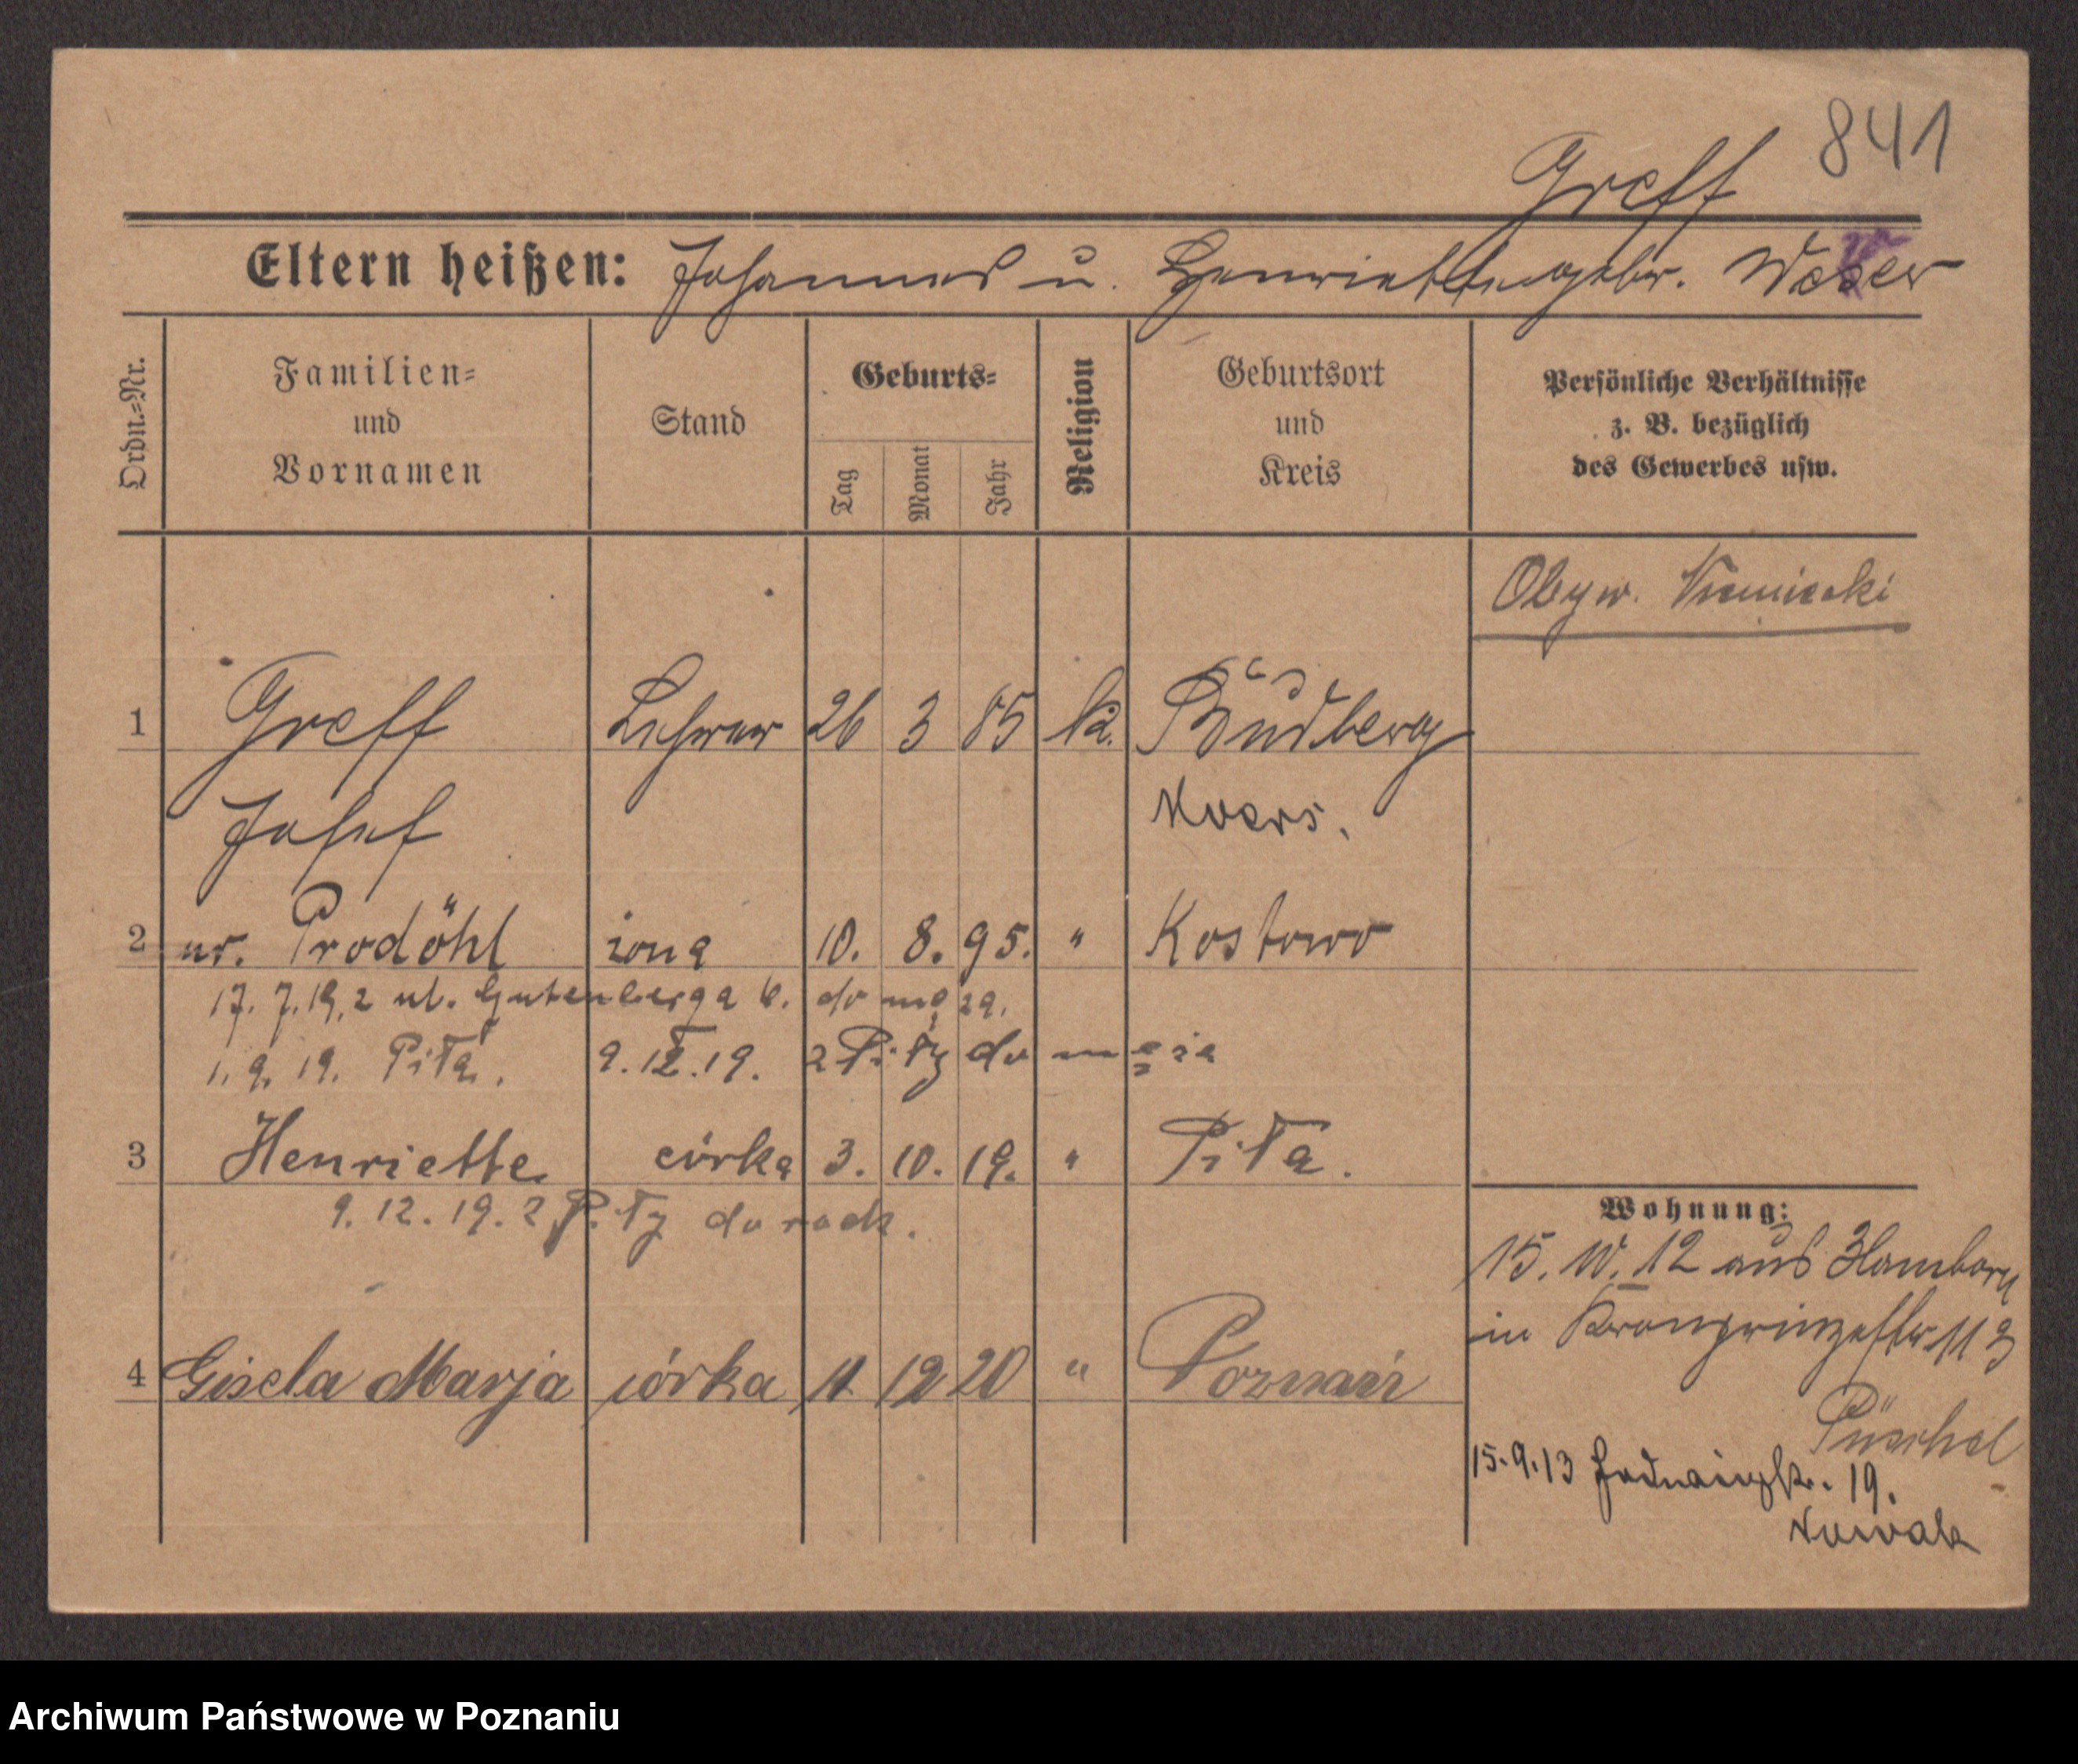 841
Greff
Eltern heißen: Johannes u. Henriette gebor. Weser
Ordn.-Nr.
Familien-
und
Vornamen
Stand
Geburts-
Tag
Monat
Jahr
Religion
Geburtsort
und
Kreis
Persönliche Verhältnisse
z. B. bezüglich
des Gewerbes usw.
Obyw. Niemiecki
1 Greff Lehrer 26 3 85 k. Büdberg
Josef Moers.
2 ur. Prodöhl żona 10. 8. 95. " Kostowo
17. 7. 19. z ul. Gutenberga 6. do męża.
1. 9. 19. Piła. 9. 12. 19. z Piły do męża
3 Henriette córka 3. 10. 19. " Piła.
9. 12. 19. z Piły do rodz.
Wohnung:
15. IV. 12 aus Hamborn
in Kronprinzenstr 113
Püschel
4 Gisela Marja córka 11 12 20 " Poznań
15.9.13 19.
Nowak
Archiwum Państwowe w Poznaniu